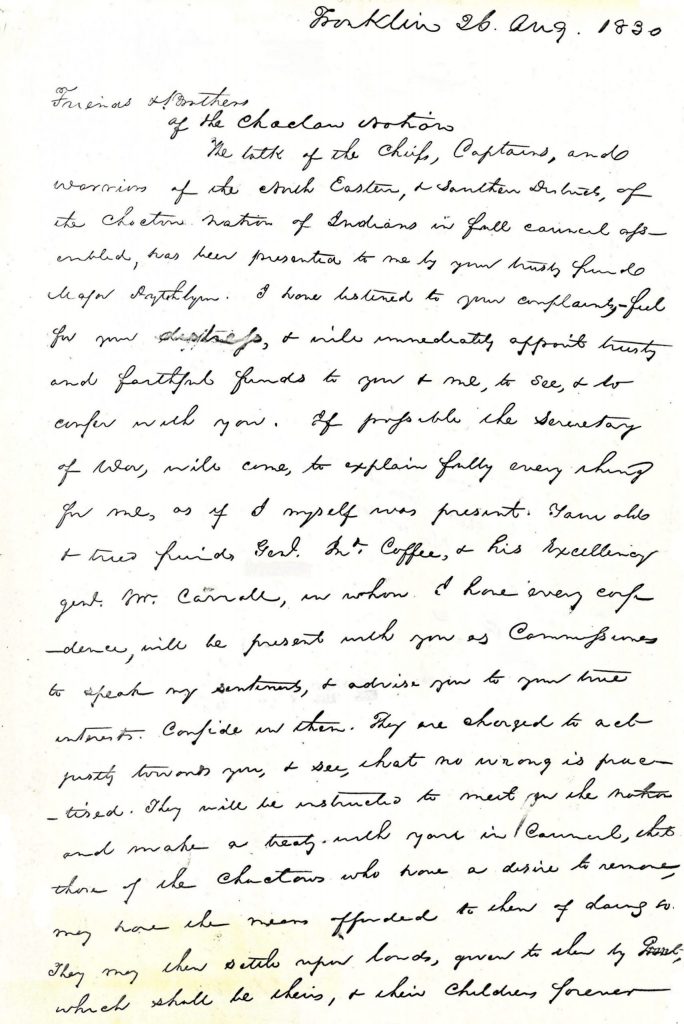 Franklin 26. Aug. 1830
Friends & Brothers
of the Choctaw nation
The talk of the Chiefs, Captains, and
warriors of the North Eastern, & Southern Districts, of
the Choctow nation of Indians in full council ass-
embled, has been presented to me by your trusty friend
Major I have listened to your complaints, feel
for your distress, & will immediately appoint trusty
and faithful friends to you & me, to see, & to
confer with you. If possible the Secretary
of War, will come, to explain fully every thing
for me, as if I myself was present. Your old
& tried friends Genl. Jno. Coffee, & his Excellency
genl. Wm. Carroll, in whom I have every conf-
-dence, will be present with you as Commissioners
to speak my sentiments, & advise you to your true
interests. Confide in them. They are charged to act
justly towards you, & see, that no wrong is prac-
-tised. They will be instructed to meet in the nation
and make a treaty with you in Council, that
those of the Choctaws who have a desire to remove,
may have the means afforded to them of doing so.
They may then settle upon lands, given to them by
which shall be theirs, & their Childrens forever